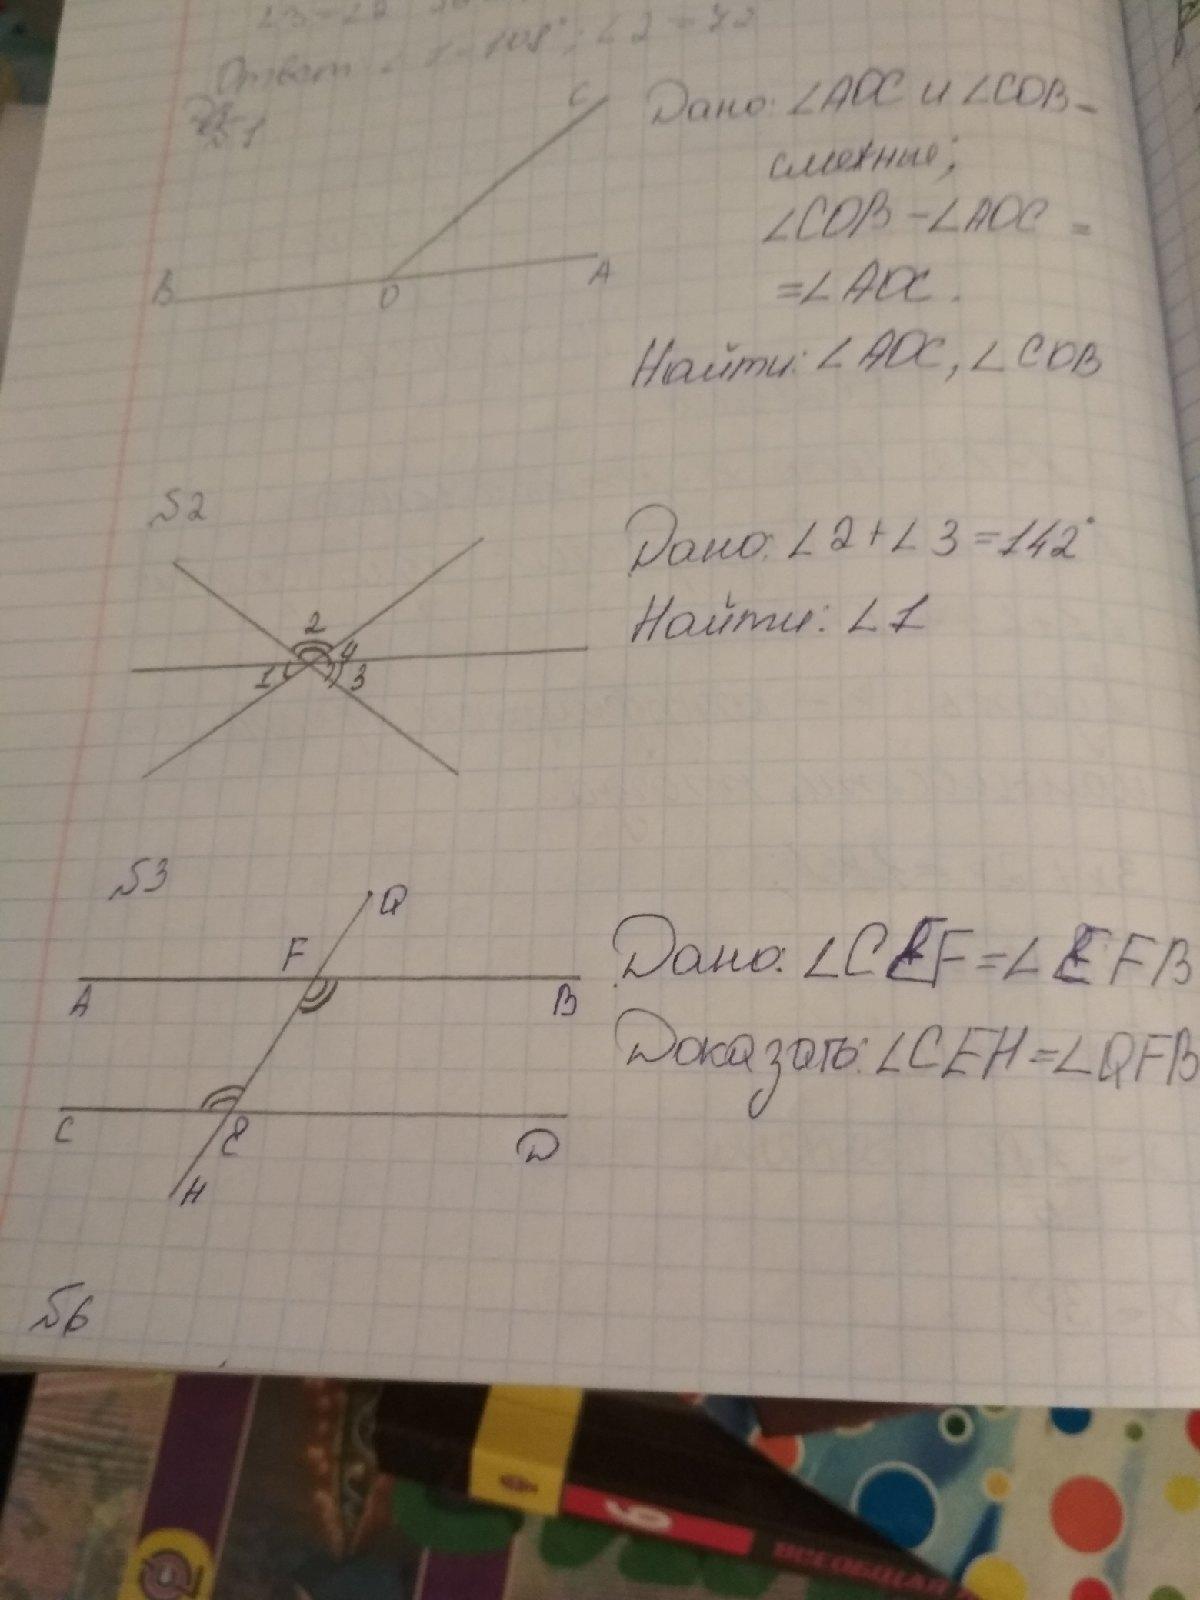 ∠3=∠2
Ответ: ∠1=108°; ∠2=72°
№1
C
B
O
A
Дано: ∠AOC и ∠COB-
смежные;
∠COB-∠AOC =
=∠AOC.
Найти: ∠AOC, ∠COB
№2
2
4
1
3
Дано: ∠2+∠3=142°
Найти: ∠1
№3
Q
F
A
B
C
E
D
H
Дано: ∠CEF=∠EFB
Доказать: ∠CEH=∠QFB
№6
6
ВСЕОБЩАЯ